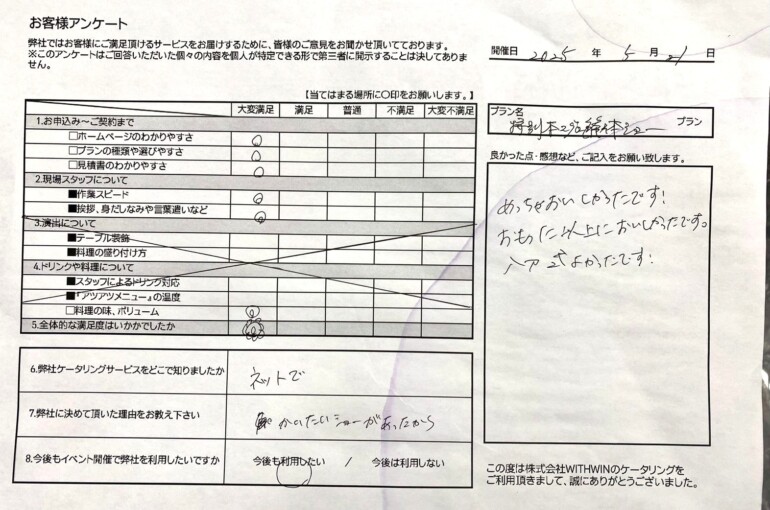 お客様アンケート
弊社ではお客様にご満足頂けるサービスをお届けするために、皆様のご意見をお聞かせ頂いております。
※このアンケートはご回答いただいた個々の内容を個人が特定できる形で第三者に開示することは決してありません。
開催日 2025 年 5 月 21 日
【当てはまる場所に〇印をお願いします。】
大変満足 満足 普通 不満足 大変不満足
1.お申込み～ご契約まで
□ホームページのわかりやすさ
□プランの種類や選びやすさ
□見積書のわかりやすさ
2.現場スタッフについて
■作業スピード
■挨拶、身だしなみや言葉遣いなど
3.演出について
■テーブル装飾
■料理の盛り付け方
4.ドリンクや料理について
■スタッフによるドリンク対応
■『アツアツメニュー』の温度
□料理の味、ボリューム
5.全体的な満足度はいかかでしたか
6.弊社ケータリングサービスをどこで知りましたか
ネットで
7.弊社に決めて頂いた理由をお教え下さい
かいたいショーがあったから
8.今後もイベント開催で弊社を利用したいですか
今後も利用したい / 今後は利用しない
プラン名
特別本マグロ解体ショー プラン
良かった点・感想など、ご記入をお願い致します。
めっちゃおいしかったです!
おもった以上においしかったです。
よかったです!
この度は株式会社WITHWINのケータリングを
ご利用頂きまして、誠にありがとうございました。